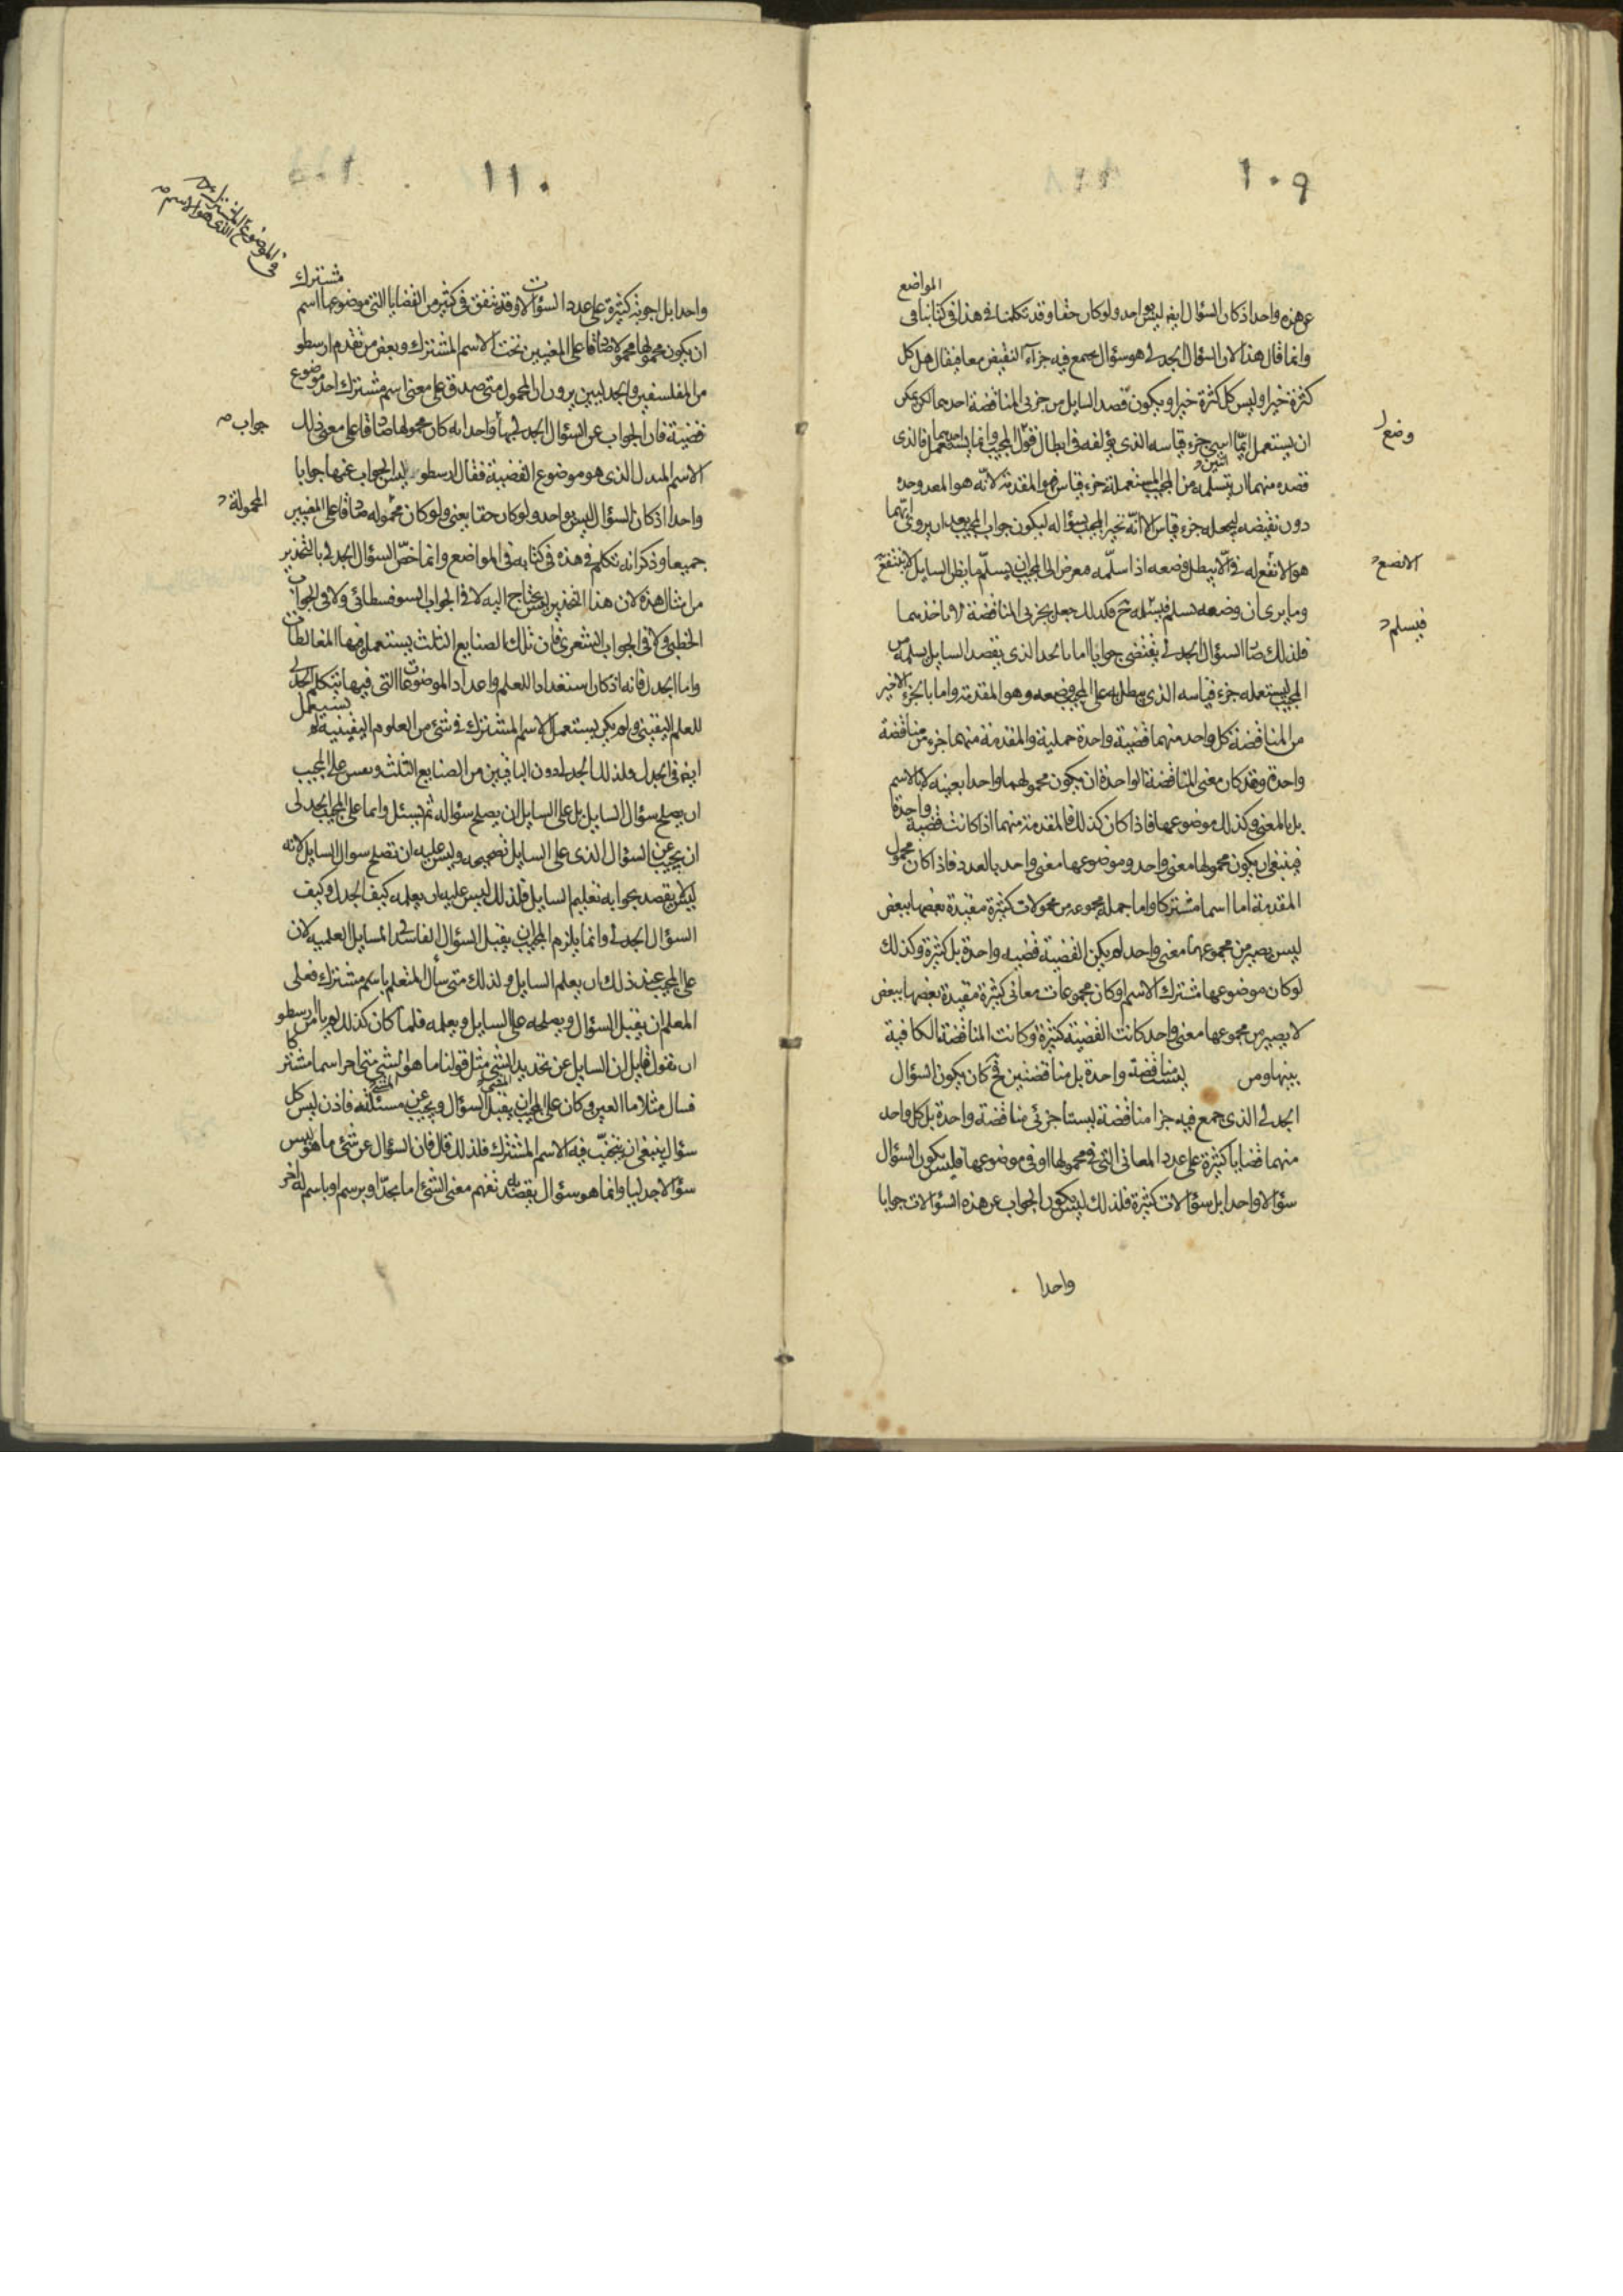 ١٠٩
المواضع
عن هذه واحدا اذ كان السؤال ايضا ليس بواحد ولو كان حقا وقد تكلمنا في هذا في كتابنا في
وانما قال هذا لان السؤال الجدلي هو سؤال يجمع فيه جزءا النقيض معا فيقال هل كل
كثرة خير او ليس كل كثرة خيرا ويكون قصد السايل من جزئي المناقضة احدهما لكن يمكن
ان يستعمل ايهما جزء قياسه الذي يؤلفه في ابطال قول المجيب وانما يستعمل فالذي
قصده منهما ان يتسلمه من المجيب ليستعمله جزء قياس هو المقدمة لانه هو المعد وحده
دون نقيضه ليجعله جزء قياس الا انه تخير المجيب بسؤاله ليكون جواب المجيب بعد ان يروى ايهما
هو الانفع له في الا يبطل وضعه اذا سلمه معرض الى المجيب ان يسلم ما يظن السايل لا ينتفع
وما يرى ان وضعه يسلم فيسئله فلذلك جعل بجزئي المناقضة
فلذلك صار السؤال الجدلي يقتضي جوابا اما باحد الذي يقصد السايل تسلمه من
المجيب ليستعمله جزء قياسه الذي يبطل به على المجيب وضعه وهو المقدمة واما بالجزء الاخير
من المناقضة كل واحد منهما قضية واحدة حملية والمقدمة منهما جزء من مناقضة
واحدة وقد كان معنى المناقضة الواحدة ان يكون محمولهما واحدا بعينه لا بالاسم
بل بالمعنى وكذلك موضوعهما فاذا كان كذلك فالمقدمة منهما اذا كانت قضية واحدة
فينبغي ان يكون محمولها معنى واحد وموضوعها معنى واحد بالعدد فاذا كان محمول
المقدمة اما اسما مشتركا واما جملة مجموعة من محمولات كثيرة مقيدة بعضها ببعض
ليس يصير من مجموعها معنى واحد لم يكن القضية قضية واحدة بل كثيرة وكذلك
لو كان موضوعها مشترك الاسم او كان مجموعات معاني كثيرة مقيدة بعضها ببعض
لا يصير من مجموعها معنى واحد كانت القضية كثيرة وكانت المناقضة الكافية
بينها ومن ليست مناقضة واحدة بل مناقضتين كان يكون السؤال
الجدلي الذي جمع فيه جزءا مناقضة ليستا جزئي مناقضة واحدة بل كل واحد
منهما قضايا كثيرة على عدد المعاني التي في محمولها او في موضوعها فليس يكون السؤال
سؤالا واحدا بل سؤالات كثيرة فلذلك ليس يكون الجواب عن هذه السؤالات جوابا
واحدا
وضع
الانفع
فيسلم
١١٠
في الموضوع المشترك الذي هو الاسم
مشترك
واحدا بل اجوبة كثيرة على عدد السؤالات وقد يتفق في كثير من القضايا التي موضوعها اسم
ان يكون محمولها محمولا صادقا على المعنيين تحت الاسم المشترك وبعض من تقدم ارسطو
من المفلسفين والجدليين يرون ان المحمول متى صدق على معنى اسم مشترك اخذ موضوع
قضية فان الجواب عن السؤال الجدلي واحد انه كان محمولها صادقا على معنى ذلك
الاسم الذي هو موضوع القضية فقال ارسطو ليس الجواب عنها جوابا
واحدا اذ كان السؤال ليس بواحد ولو كان حقا يعني ولو كان محموله صادقا على المعنيين
جميعا وذكر انه تكلم في هذه في كتابه في المواضع وانما خص السؤال الجدلي بالتحذير
من امثال هذه لان هذا التحذير ليس يحتاج اليه لا في الجواب السوفسطائي ولا في الجواب
الخطبي ولا في الجواب الشعري فان تلك الصنايع الثلث يستعمل فيها المغالطات
واما الجدل فانه اذ كان استعدادا للعلم واعداد الموضوعات التي فيها يتكلم الجدلي
للعلم اليقيني ولم يكن يستعمل الاسم المشترك في شئ من العلوم اليقينية لم يستعمل
ايضا في الجدل فلذلك الجدل دون الباقيين من الصنايع الثلث وليس على المجيب
ان يصلح سؤال السايل بل على السايل ان يصلح سؤاله ثم يسئل وانما على المجيب الجدلي
ان يجيب عن السؤال الذي على السايل تصحيحه وليس عليه ان نصلح سؤال السايل لانه
ليس يقصد بجوابه تعليم السايل فلذلك ليس عليه ان يعلمه كيف الجدل وكيف
السؤال الجدلي وانما يلزم المجيب ان يقبل السؤال الفاسد في المسايل العلمية لان
على المجيب عند ذلك ان يعلم السايل ولذلك متى سأل المتعلم باسم مشترك فعلى
المعلم ان يقبل السؤال ويصلحه على السايل ويعلمه فلما كان كذلك لم يامن ارسطو
ان يقول قايل ان السايل عن تحديد الشئ مثل قولنا ما هو الشئ متى اخذ اسما مشتركا
فسال مثلا ما العين كان على المجيب ان يقبل السؤال ويجيب عن مسئلته فاذن ليس كل
سؤال ينبغي ان يتجنب فيه الاسم المشترك فلذلك قال فان السؤال عن شئ ما هو ليس
سؤالا جدليا وانما هو سؤال يقصد به تفهم معنى الشئ اما بحد او برسم او باسم له اخر
جواب
المحمولة